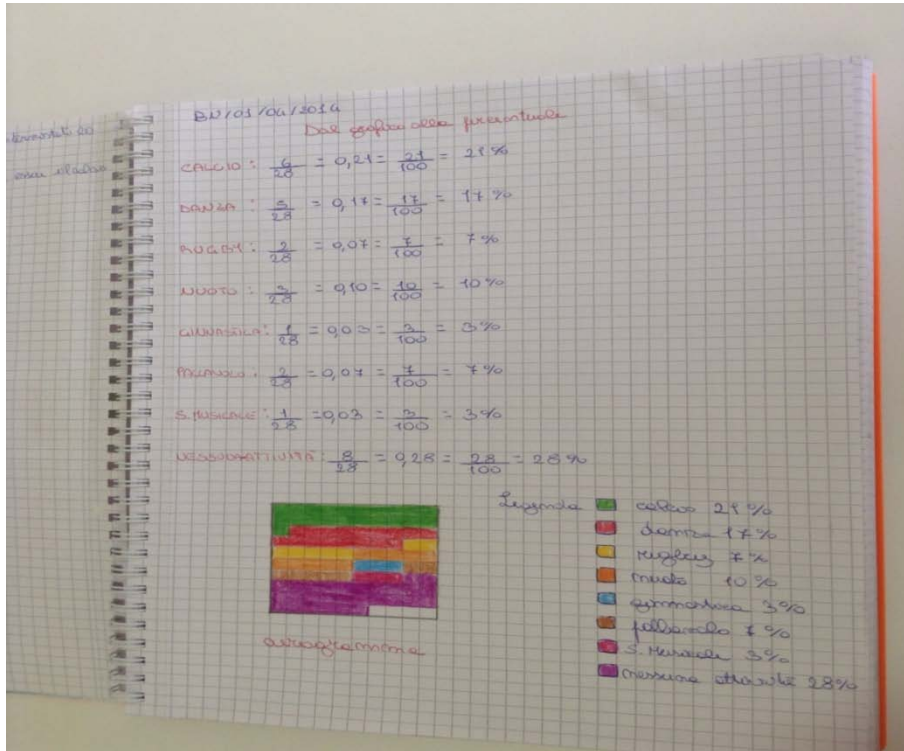 BN/01/04/2014
Dal grafico alla percentuale
CALCIO: 6/28 = 0,21 = 21/100 = 21%
DANZA: 5/28 = 0,17 = 17/100 = 17%
RUGBY: 2/28 = 0,07 = 7/100 = 7%
NUOTO: 3/28 = 0,10 = 10/100 = 10%
GINNASTICA: 1/28 = 0,03 = 3/100 = 3%
PALLAVOLO: 2/28 = 0,07 = 7/100 = 7%
S. MUSICALE: 1/28 = 0,03 = 3/100 = 3%
NESSUNA ATTIVITÀ: 8/28 = 0,28 = 28/100 = 28%
Legenda
calcio 21%
danza 17%
rugby 7%
nuoto 10%
ginnastica 3%
pallavolo 7%
S. Musicale 3%
nessuna attività 28%
areogramma